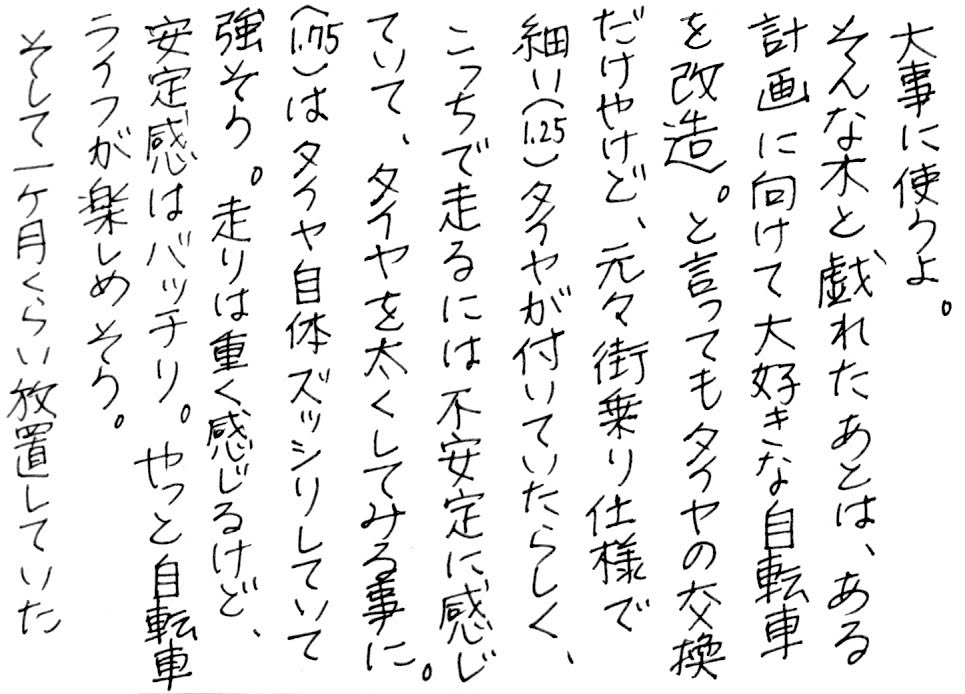 大事に使うよ。
そんな木と戯れたあとは、ある
計画に向けて大好きな自転車
を改造。と言ってもタイヤの交換
だけやけど、元々街乗り仕様で
細い(1.25)タイヤが付いていたらしく、
こっちで走るには不安定に感じ
ていて、タイヤを太くしてみる事に。
(1.75)はタイヤ自体ズッシリしていて
強そう。走りは重く感じるけど、
安定感はバッチリ。やっと自転車
ライフが楽しめそう。
そして一ヶ月くらい放置していた